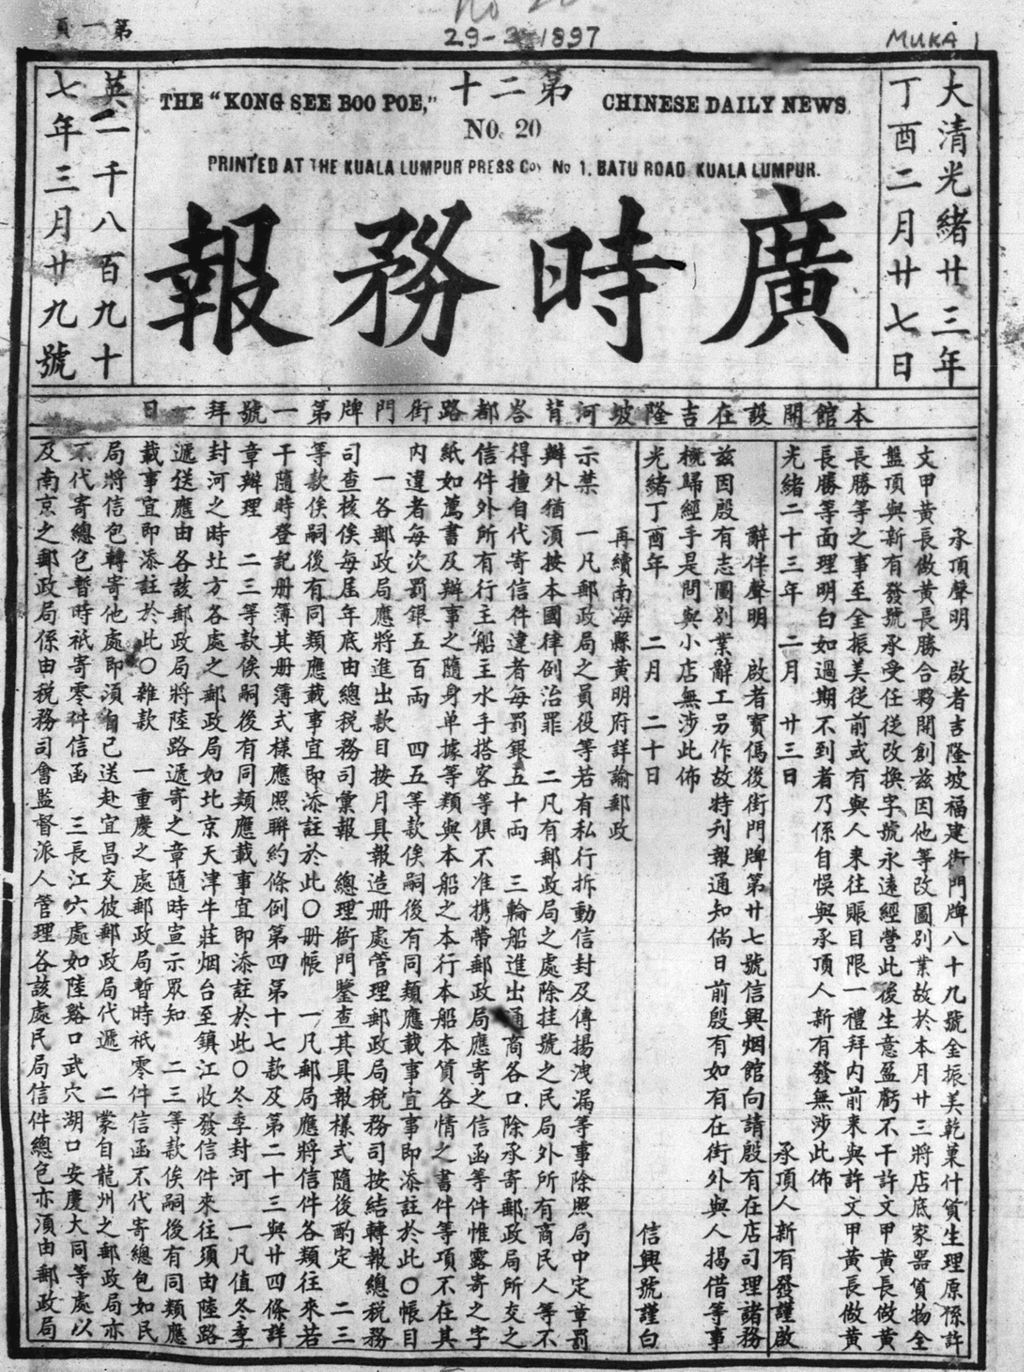 第一頁
29-3-1897
MUKA 1
大清光緒廿三年
丁酉二月廿七日
第二十
THE "KONG SEE BOO POE,"
CHINESE DAILY NEWS.
NO. 20
PRINTED AT THE KUALA LUMPUR PRESS Coy No 1, BATU ROAD, KUALA LUMPUR.
廣時務報
英一千八百九十
七年三月廿九號
本館開設在吉隆坡河背峇都路街門牌第一號拜一日
承頂聲明　啟者吉隆坡福建街門牌八十九號金振美乾菓什貨生理原係許
文甲黃長做黃長勝合夥開創茲因他等改圖別業故於本月廿三將店底家器貨物全
盤頂與新有發號承受任從改換字號永遠經營此後生意盈虧不干許文甲黃長做黃
長勝等之事至金振美從前或有與人來往賬目限一禮拜內前來與許文甲黃長做黃
長勝等面理明白如過期不到者乃係自悞與承頂人新有發無涉此佈
光緒二十三年　二月　廿三日　承頂人新有發謹啟
辭伴聲明　啟者寶傌後街門牌第廿七號信興烟館向請殷有在店司理諸務
茲因殷有志圖別業辭工另作故特刊報通知倘日前殷有如有在街外與人揭借等事
概歸經手是問與小店無涉此佈
光緒丁酉年　二月　二十日　信興號謹白
再續南海縣黃明府詳諭郵政
示禁　一凡郵政局之員役等若有私行拆動信封及傳揚洩漏等事除照局中定章罰
辦外猶須按本國律例治罪　二凡有郵政局之處除挂號之民局外所有商民人等不
得擅自代寄信件違者每罰銀五十両　三輪船進出通商各口除承寄郵政局所交之
信件外所有行主船主水手搭客等俱不准携帶郵政局應寄之信函等件惟露寄之字
紙如萬書及辦事之隨身单據等類與本船之本行本船本貨各情之書件等項不在其
內違者每次罰銀五百両　四五等款俟嗣後有同類應載事宜事即添註於此〇帳目
一各郵政局應將進出款目按月具報造册處管理郵政局稅務司按結轉報總稅務
司查核俟每屆年底由總稅務司彙報　總理衙門鑒查其具報樣式隨後酌定　二三
等款俟嗣後有同類應載事宜即添註於此〇册帳　一凡郵局應將信件各類往來若
干隨時登記册簿其册簿式樣應照聯約條例第四第十七款及第二十三與廿四條詳
章辦理　二三等款俟嗣後有同類應載事宜即添註於此〇冬季封河　一凡值冬季
封河之時北方各處之郵政局如北京天津牛莊烟台至鎮江收發信件來往須由陸路
遞送應由各該郵政局將陸路遞寄之章隨時宣示眾知　二三等款俟嗣後有同類應
載事宜即添註於此〇雜款　一重慶之處郵政局暫時祇零件信函不代寄總包如民
局將信包轉寄他處即須自己送赴宜昌交彼郵政局代遞　二蒙自龍州之郵政局亦
不代寄總包暫時祇寄零件信函　三長江六處如陸谿口武穴湖口安慶大同等處以
及南京之郵政局係由稅務司會監督派人管理各該處民局信件總包亦須由郵政局